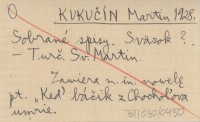 KUKUČÍN Martin 1928.
Sobrané spisy. Sväzok ?.
– Turč. Sv. Martin.
Zawiera m. in. nowelę
pt. „Keď báčik z Chochoľova
umrie.